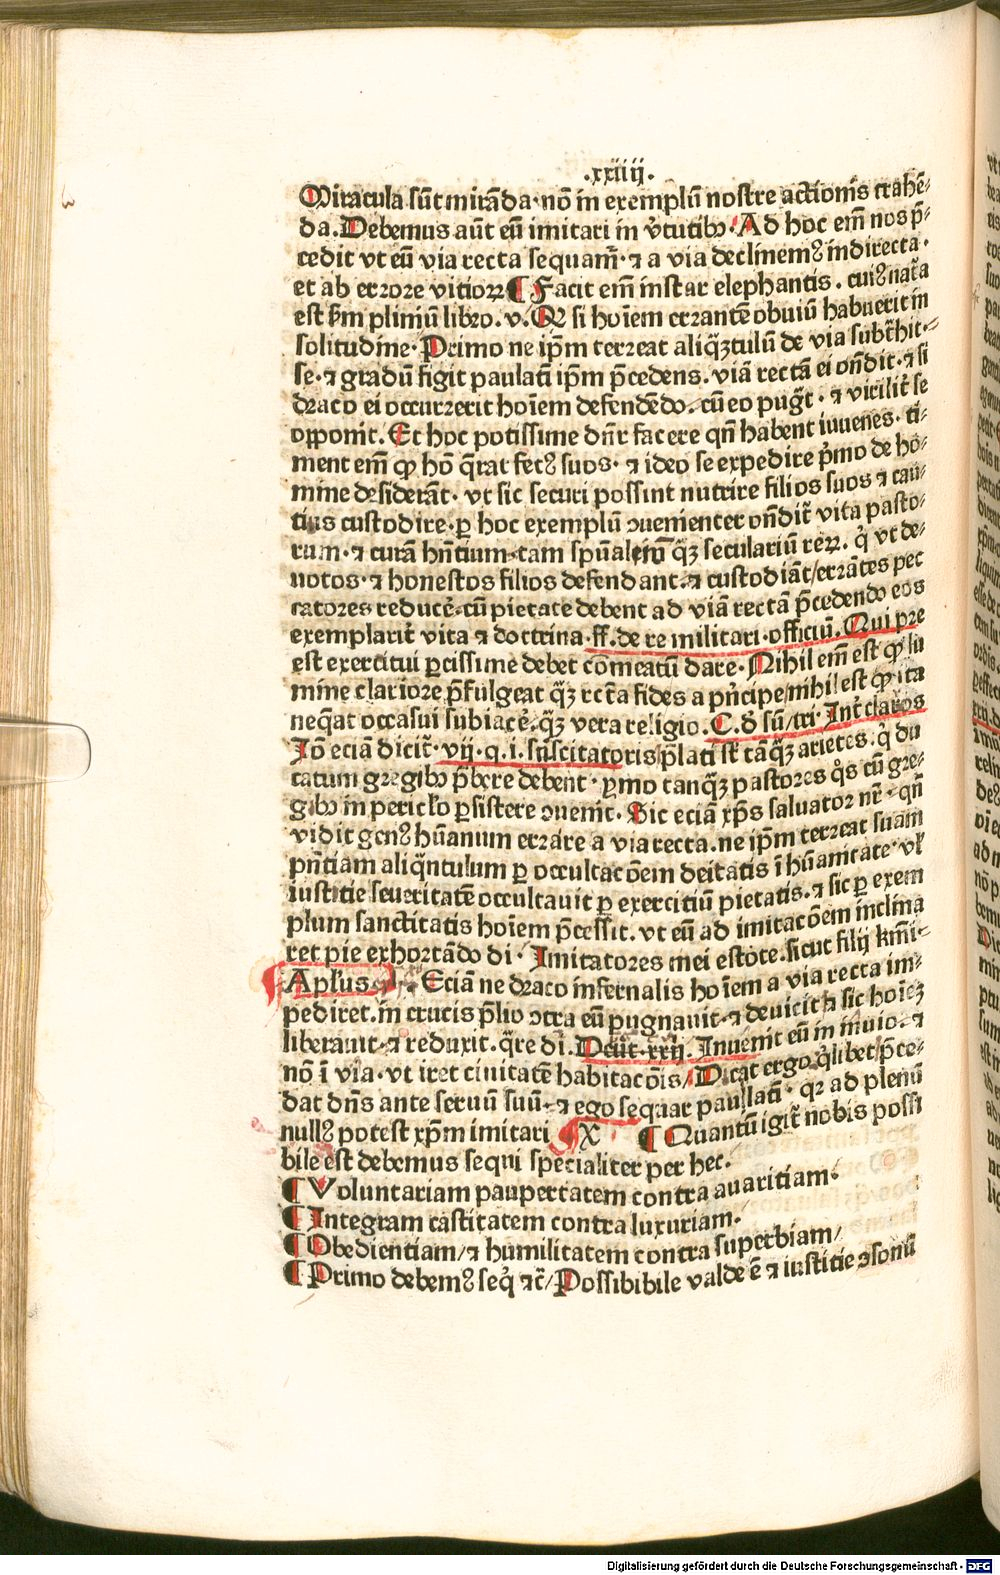 .xxiiij.
Miracula sūt mirāda· nō in exemplū nostre actionis trahē⸗
da. Debemus aūt eū imitari in v̓tutibꝰ· Ad hoc em̄ nos p̄⸗
cedit vt eū via recta sequam̄· ⁊ a via declinemꝰ indirecta·
et ab errore vitioꝝ ¶ Facit em̄ instar elephantis. cuiꝰ nat̄a
est ẜm pliniū libro. v. Qꝛ si hoīem errantē obuiū habuerit in
solitudine· Primo ne ip̄m terreat aliq̄ꝫtulū de via subt̄hit·⸗
se· ⁊ gradū figit paulatī ip̄m p̄cedens. viā rectā ei on̄dit· ⁊ si
draco ei occurrerit hoīem defendēdo. cū eo pugt̄· ⁊ virilit̄ se
opponit. Et hoc potissime dn̄r facere qn̄ habent iuuenes· ti⸗
ment em̄ ꝙ hō q̄rat fetꝰ suos· ⁊ ideo se expedire p̓mo de ho⸗
mine desiderāt· vt sic securi possint nutrire filios suos ⁊ cau⸗
tius custodire· ꝑ hoc exemplū ↄuenienter on̄dit̄ vita pasto⸗
rum· ⁊ curā hn̄tium tam spūaliū q̄ꝫ seculariū reꝝ. q̓ vt de⸗
uotos· ⁊ honestos filios defendant· ⁊ custodiāt/ errātes pec
catores reducē· cū pietate debent ad viā rectā p̄cedendo eos
exemplarit̄ vita ⁊ doctrina· ff. de re militari· officiū. Qui pre
est exercitui ꝑcissime debet cōmeatū dare· Nihil em̄ est ꝙ lu
mine clariore p̄fulgeat q̄ꝫ rct̄a fides a pn̓cipe/ nihil est ꝙ ita
neq̄at occasui subiacē· q̄ꝫ vera religio· C. d sū/ tri· Int̄ claros
Iō eciā dicit̄· vij. q. i. suscitatoris/ p̄lati sc̄ tāq̄ꝫ arietes. q̓ du
catum gregibꝰ p̄bere debent· p̓mo tanq̄ꝫ pastores q̓s cū gre⸗
gibꝰ in periclo ꝑsistere ↄuenit· Sic eciā xp̄s saluator nr̄· qn̄
vidit genꝰ hūanum errare a via recta. ne ip̄m terreat suam
pn̄tiam aliq̄ntulum ꝑ occultacōem deitatis ī hūanitate· vl̓
iusticie seueritatē occultauit ꝑ exercitiū pietatis. ⁊ sic ꝑ exem
plum sanctitatis hoīem p̄cessit. vt eū ad imitacōem inclina
ret pie exhortādo di· Imitatores mei estote. sicut filij kmī⸗
Apl̓us Eciā ne draco infernalis hoīem a via recta im⸗
pediret. in crucis p̄lio ↄtra eū pugnauit· ⁊ deuicit ⁊ sic hoīeꝫ
liberauit· ⁊ reduxit. q̄re di. Deut̄· xxij. Inuenit eū in inuio· ⁊
nō ī via· vt iret ciuitatē habitacōis/ Dicat ergo q̓libet/ p̄ce⸗
dat dn̄s ante seruū suū· ⁊ ego sequar paullatī· qꝛ ad plenū
nullꝰ potest xp̄m imitari ¶ X ¶ Quantū igit̄ nobis possi
bile est debemus sequi specialiter per hec.
¶ Voluntariam paupertatem contra auaritiam·
¶ Integram castitatem contra luxuriam·
¶ Obedientiam/ ⁊ humilitatem contra superbiam/
¶ Primo debemꝰ seq̓ ⁊c̄/ Possibibile valde ē ⁊ iusticie ↄsonū
Digitalisierung gefördert durch die Deutsche Forschungsgemeinschaft - DFG